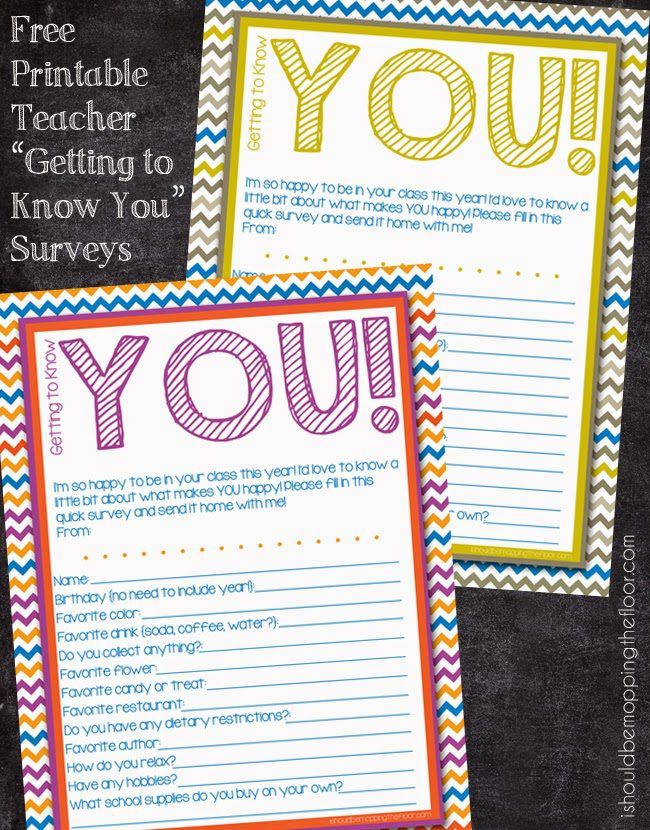 Free
Printable
Teacher
“Getting to
Know You”
Surveys
Getting to Know
YOU!
I'm so happy to be in your class this year! I'd love to know a
little bit about what makes YOU happy! Please fill in this
quick survey and send it home with me!
From:
Name:
?):
own?
ishouldbemoppingthefloor.com
Getting to Know
YOU!
I'm so happy to be in your class this year! I'd love to know a
little bit about what makes YOU happy! Please fill in this
quick survey and send it home with me!
From:
Name:
Birthday (no need to include year!):
Favorite color:
Favorite drink (soda, coffee, water?):
Do you collect anything?:
Favorite flower:
Favorite candy or treat:
Favorite restaurant:
Do you have any dietary restrictions?:
Favorite author:
How do you relax?
Have any hobbies?
What school supplies do you buy on your own?
ishouldbemoppingthefloor.com
ishouldbemoppingthefloor.com